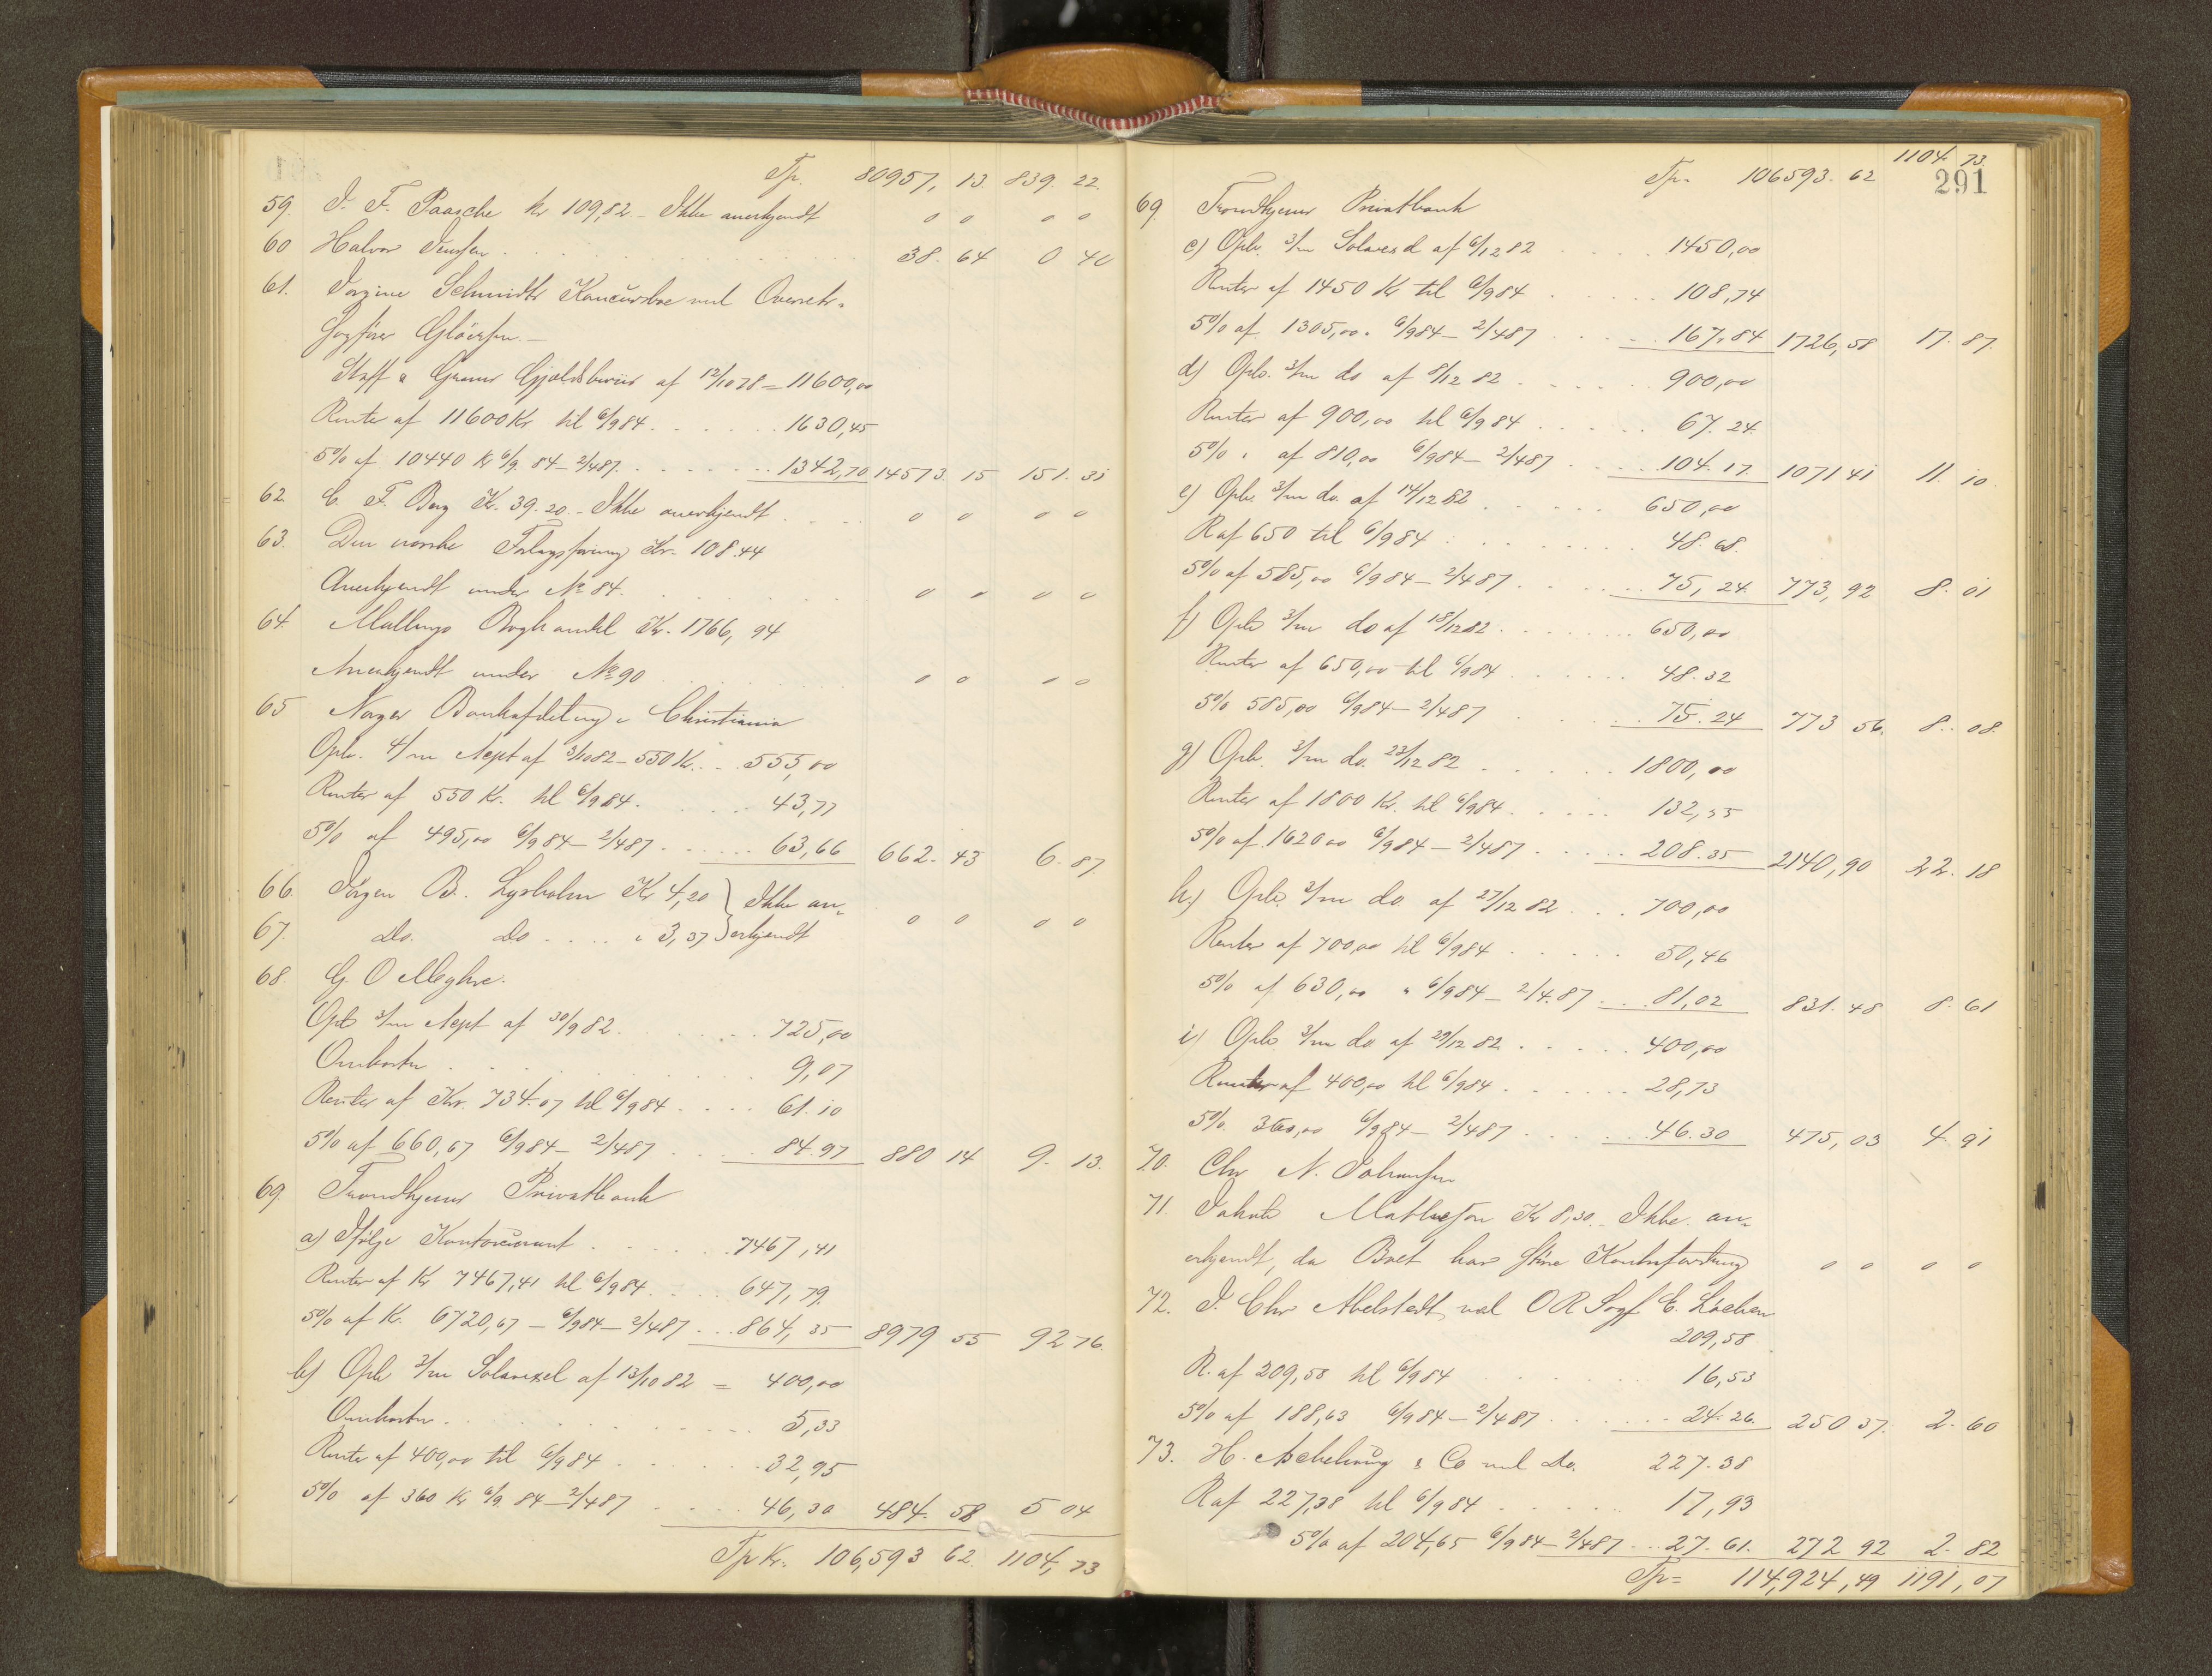 Tp. 80957, 13. 839. 22.
59. J. F. Paasche Kr 109,82 - Ikke anerkjendt 0 0 0 0
60 Halvor Jensen 38. 64 0 40
61. Jorgine Schmidts Koncursbo ved Overrets-
sagfører Gløersen. -
Staff & Grams Gjældsbeviis af 12/10 78 = 11600,00
Renter af 11600 Kr til 6/9 84 1630,45
5% af 10440 Kr 6/9. 84 - 2/4 87. 1342,70 14573. 15 151. 31
62. C. F. Berg Kr. 39. 20 - Ikke anerkjendt 0 0 0 0
63. Den norske Forlagsforening Kr. 108.44
Anerkjendt under No 84. 0 0 0 0
64. Mallings Boghandel Kr. 1766, 94
Anerkjendt under No 90 0 0 0 0
65 Norges Bankafdeling i Christiania
Opb. 4/m Acpt af 3/10 82 - 550 Kr. 555,00
Renter af 550 Kr. til 6/9 84. 43,77
5% af 495,00 6/9 84 - 2/4 87. 63,66 662. 43 6. 87.
66. Jørgen B. Lysholm Kr 4,20 } Ikke an-
67. Do. Do " 3,37 } erkjendt 0 0 0 0
68. G. O Møghre.
Opb 3/m Acpt af 30/9 82. 725,00
Omkostn 9,07
Renter af Kr. 734.07 til 6/9 84 61.10
5% af 660,67 6/9 84 - 2/4 87 84.97 880 14 9. 13.
69. Trondhjems Privatbank
a) Ifølge Kontocourant 7467,41
Renter af Kr 7467,41 til 6/9 84. 647,79.
5% af Kr. 6720,67 - 6/9 84 - 2/4 87 864,35 8979 55 92 76.
b) Opb 3/m Solavexel af 13/10 82 = 400,00
Omkostn. 5,33
Rente af 400,00 til 6/9 84 32,95
5% af 360 Kr 6/9. 84 - 2/4 87 46,30 484. 58 5 04
Tp Kr. 106,593 62. 1104,73
1104. 73.
Tp. 106593. 62 291
69. Trondhjems Privatbank
c) Opb. 3/m Solavexel af 6/12 82 1450,00
Renter af 1450 Kr til 6/9 84 108,74
5% af 1305,00. 6/9 84 - 2/4 87 167,84 1726,58 17. 87.
d) Opb. 3/m do af 8/12 82 900,00
Renter af 900,00 til 6/9 84 67. 24.
5% " af 810,00 6/9 84 - 2/4 87 104. 17. 1071 41 11. 10.
e) Opb. 3/m do. af 14/12 82 650,00
R af 650 til 6/9 84 48. 68.
5% af 585,00 6/9 84 - 2/4 87 75, 24. 773, 92 8. 01
f) Opb 3/m do af 18/12 82 650,00
Renter af 650,00 til 6/9 84 48. 32
5% 585,00 6/9 84 - 2/4 87 75. 24 773 56. 8. 08.
g) Opb. 3/m do. 23/12 82 1800,00
Renter af 1800 Kr. til 6/9 84 132,55
5% af 1620 00 6/9 84 - 2/4 87 208. 35 2140,90 22. 18
h.) Opb. 3/m do. af 27/12 82 700,00
Renter af 700,00 til 6/9 84 50,46
5% af 630,00 " 6/9 84 - 2/4. 87 81,02 831. 48 8. 61
i) Opb. 3/m do af 29/12 82 400,00
Renter af 400,00 til 6/9 84 28,73
5% 360,00 6/9 84 - 2/4 87 46. 30 475,03 4. 91
70. Chr N. Johansen
71. Jakob Mathieson Kr 8,30 - Ikke an-
erkjendt, da Boet har større Kontrafordring 0 0 0 0
72. J. Chr Abelstedt ved O R Sagf. E. Lochen
209,58
R. af 209,58 til 6/9 84 16,53
5% af 188,63 6/9 84 - 2/4 87 24. 26. 250 37. 2. 60
73. H. Aschehoug & Co ved Do. 227. 38
R af 227,38 til 6/9 84 17,93
5% af 204,65 6/9 84 - 2/4 87 27. 61. 272 92 2. 82
Tp = 114,924, 49 1191, 07